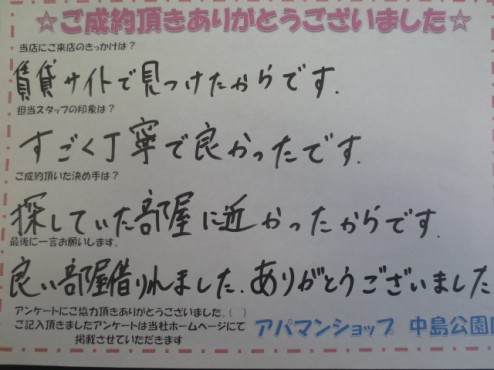 ☆ご成約頂きありがとうございました☆
当店にご来店のきっかけは？
賃貸サイトで見つけたからです.
担当スタッフの印象は？
すごく丁寧で良かったです.
ご成約頂いた決め手は？
探していた部屋に近かったからです.
最後に一言お願いします。
良い部屋借りれました.ありがとうございました
アンケートにご協力頂きありがとうございました。(^^)
ご記入頂きましたアンケートは当社ホームページにて
掲載させていただきます
アパマンショップ 中島公園